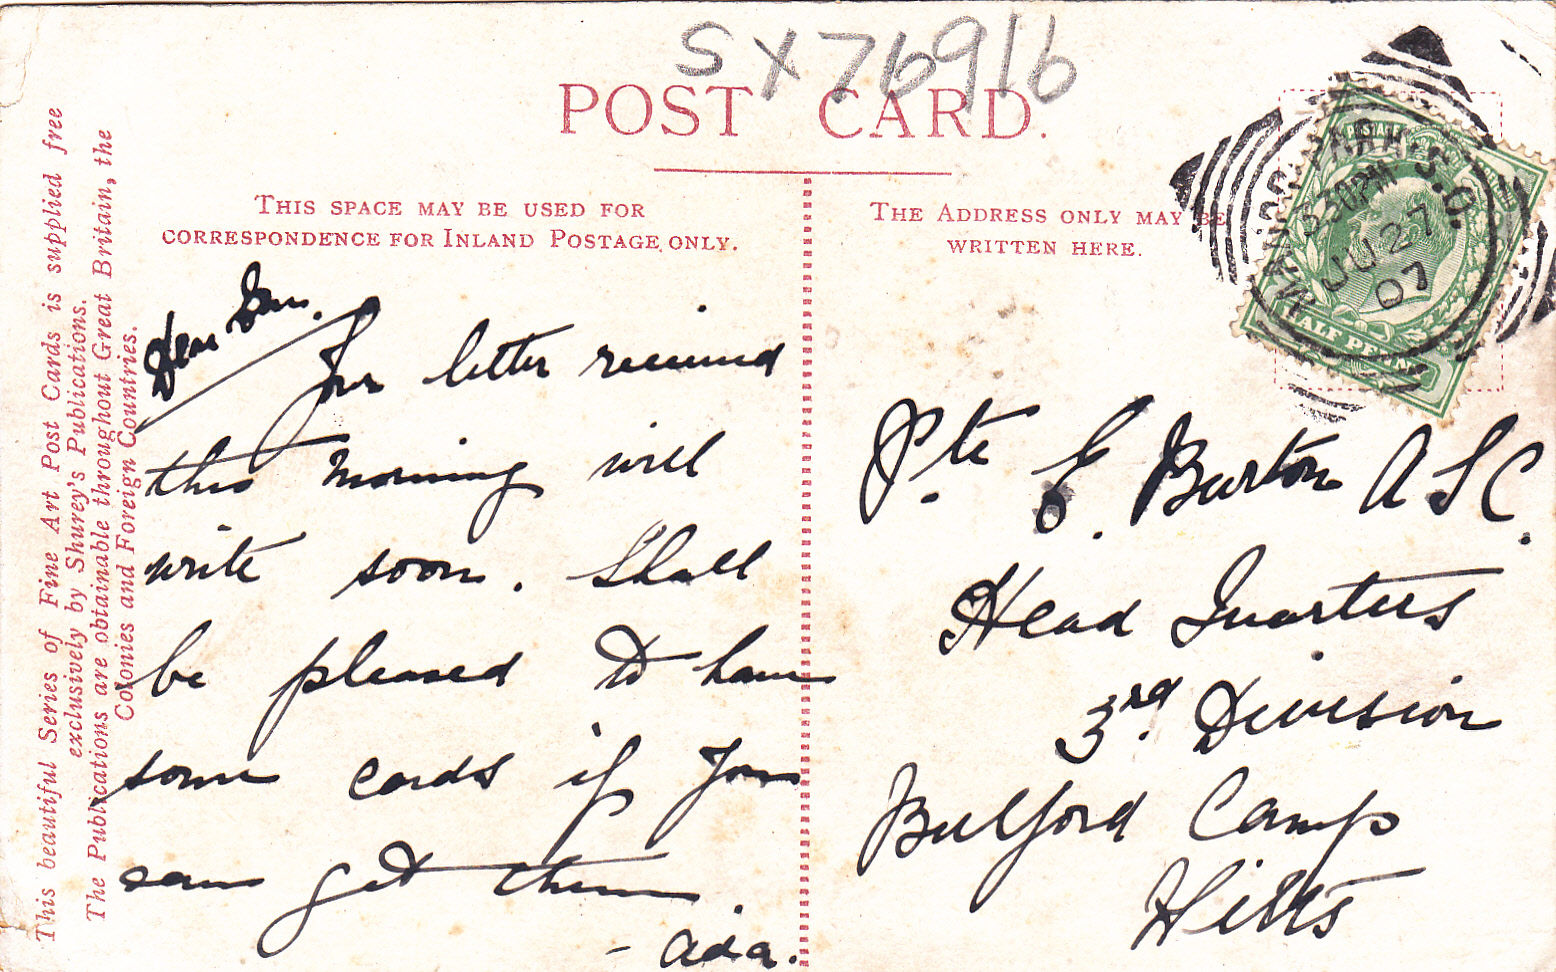 SX76916
POST CARD.
THIS SPACE MAY BE USED FOR
CORRESPONDENCE FOR INLAND POSTAGE ONLY.
THE ADDRESS ONLY MAY BE
WRITTEN HERE.
This beautiful Series of Fine Art Post Cards is supplied free
exclusively by Shurey's Publications.
The Publications are obtainable throughout Great Britain, the
Colonies and Foreign Countries.
Dear
Your letter received
this morning will
write soon. Shall
be pleased to have
some cards if you
can get them.
- Ada.
MANOR PARK S.O.
3.30PM
JU 27
07
HALF PENNY
Pte E. Burton A S C.
Head Quarters
3rd. Division
Bulford Camp
Wilts